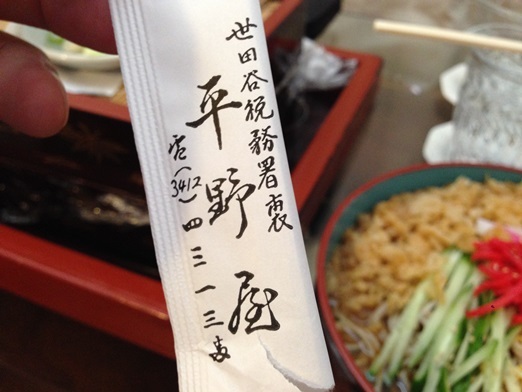 世田谷税務署裏
平野屋
電(3412)四三一三番